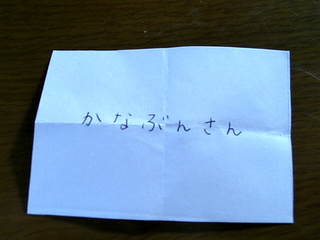 かなぶんさん